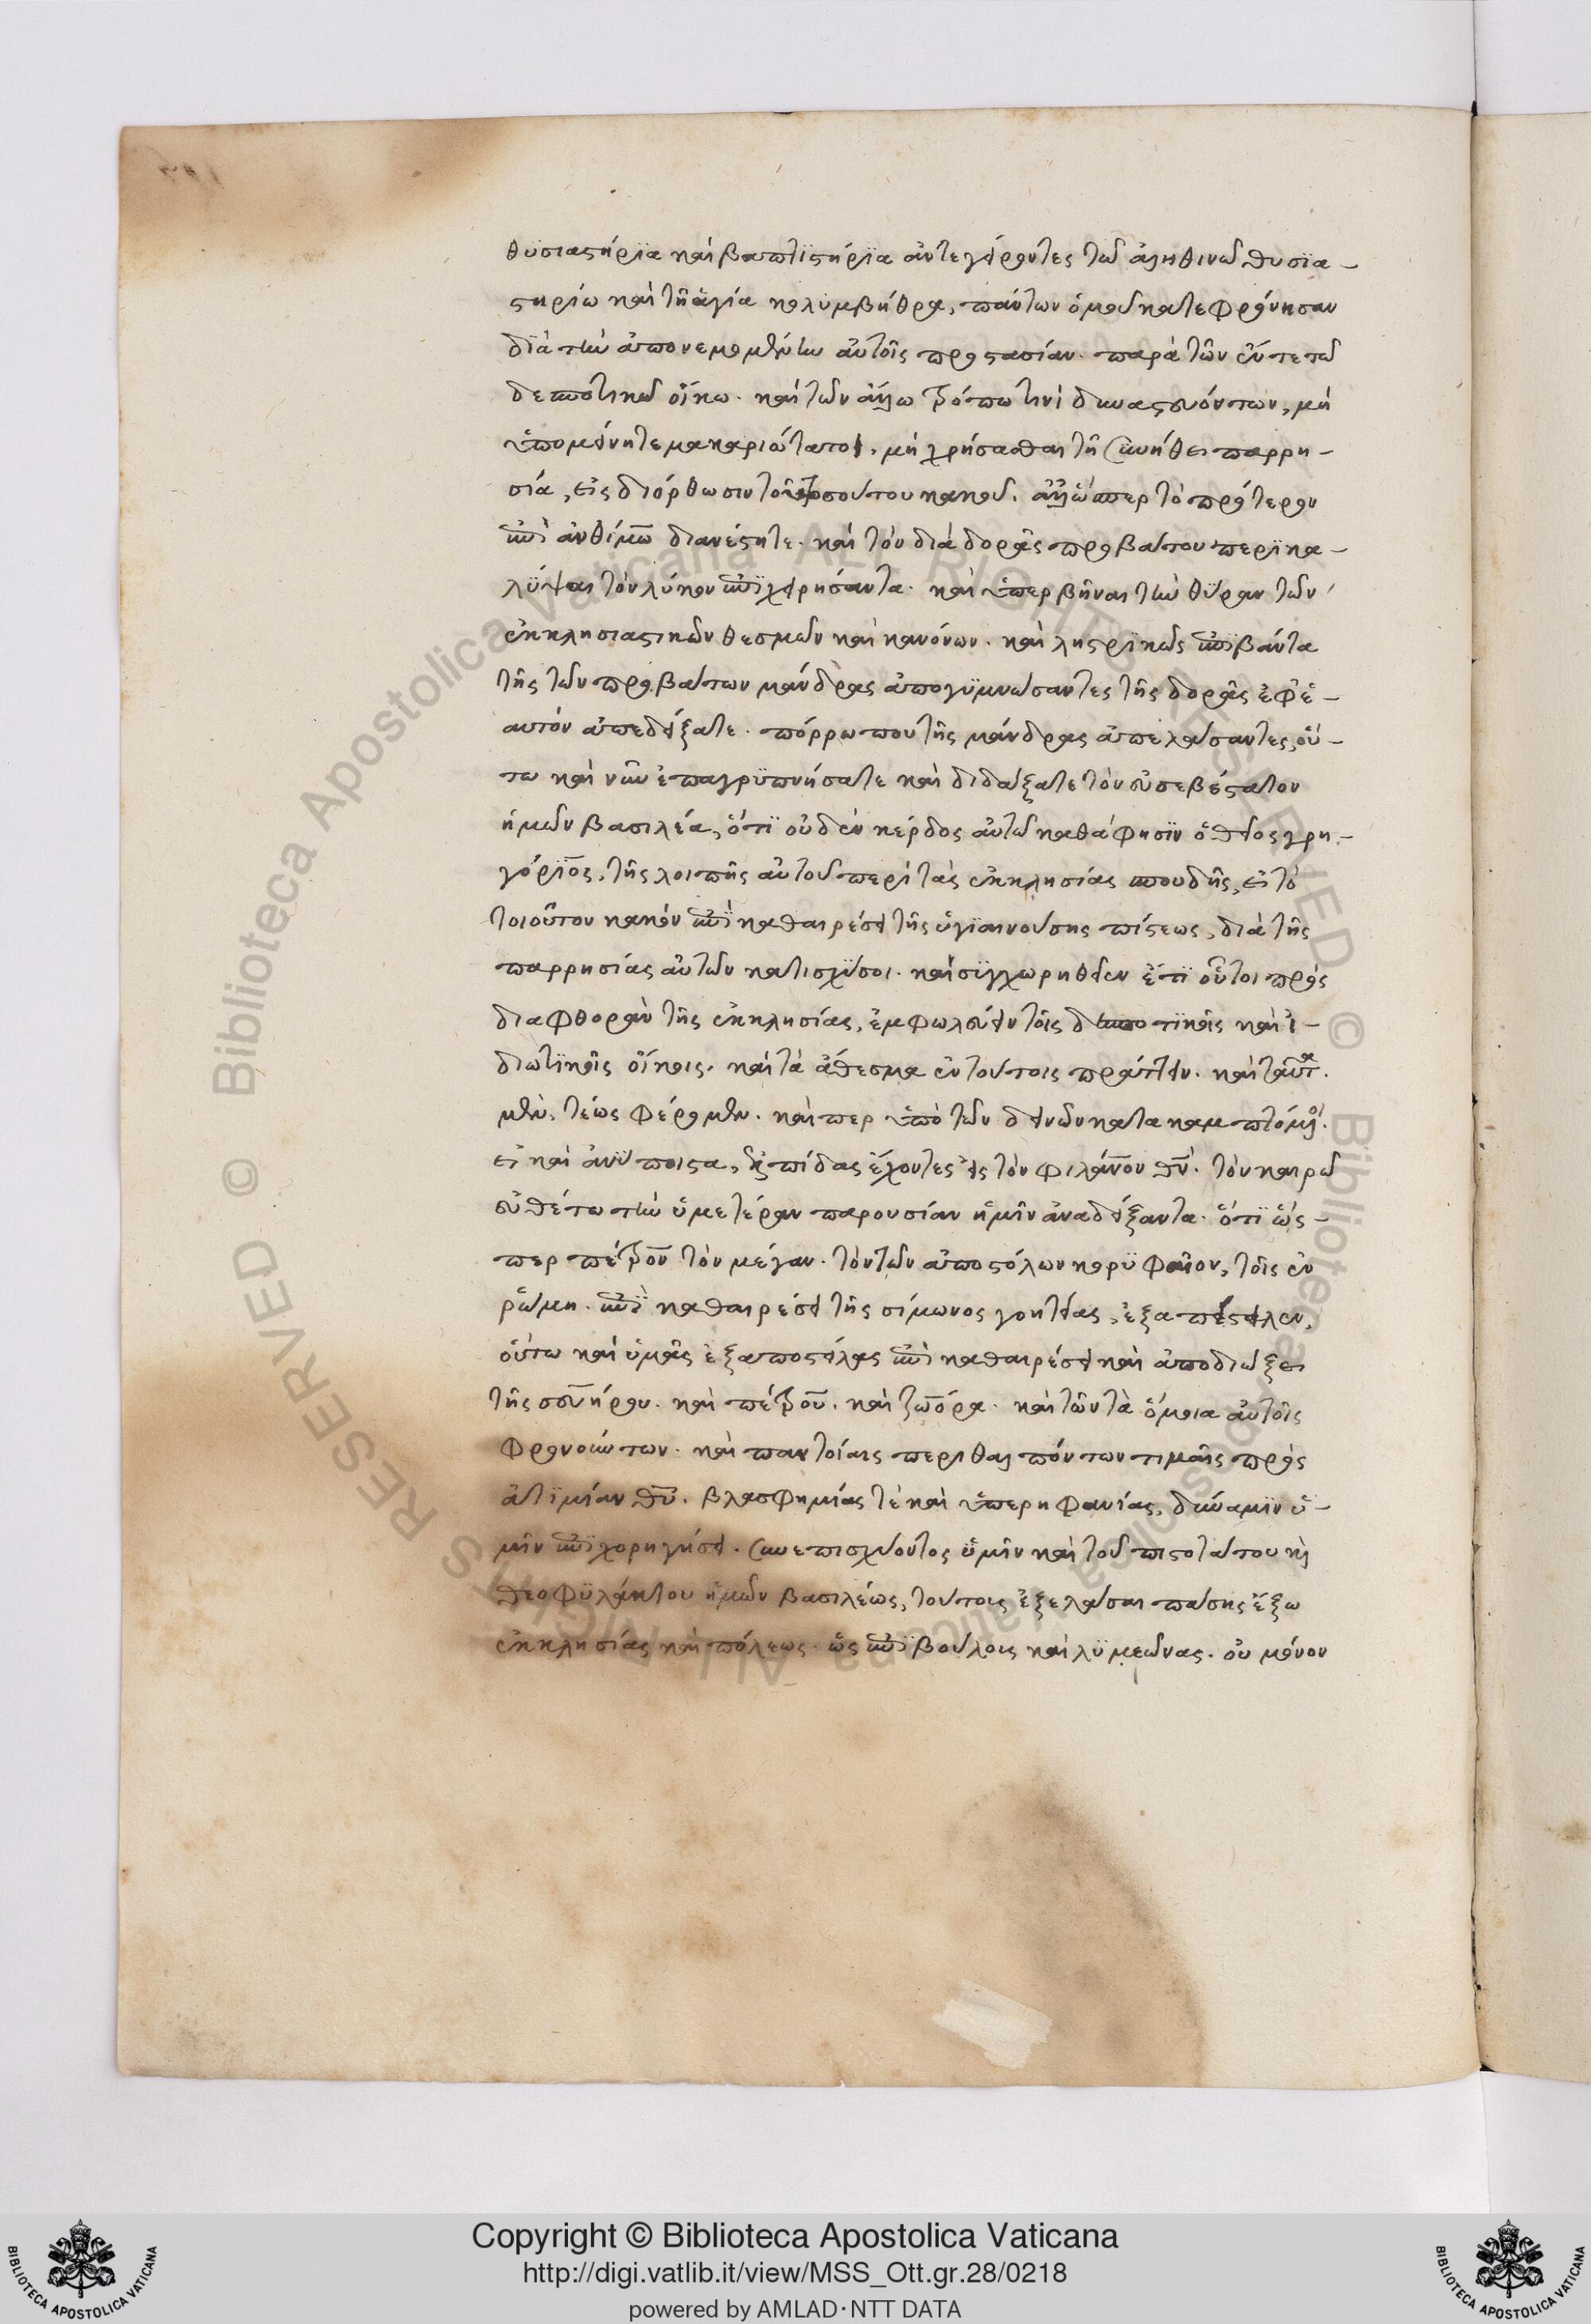 θϋσιαστήρϊα καὶ βαπτϊστήρϊα ἀντεγείροντες τῶ ἀληθινῶ θυσϊα-
στηρίω καὶ τῆ ἁγία κολϋμβήθρα, πάντων ὁμοῦ κατεφρόνησαν
δϊὰ τὴν ἀπονεμομένην αὐτοῖς προστασίαν. παρὰ τῶν ἔν τε τῶ
δεσποτικῶ οἴκω. καὶ τῶν ἄλλω τρόπω τινὶ δυναστευόντων, μὴ
ὑπομείνητε μακαριώτατοι, μὴ χρήσασθαι τῆ συνήθει παρρη-
σία, εἰς διόρθωσιν τοῦ τοσούτου κακοῦ. ἀλλ' ὥσπερ τὸ πρότερον
ἐπὶ ἀνθίμω διανέστητε. καὶ τὸν διὰ δορᾶς προβάτου περϊκα-
λϋψαι τὸν λύκον ἐπϊχειρήσαντα. καὶ ὑπερβῆναι τὴν θϋραν τῶν
ἐκκλησιαστικῶν θεσμῶν καὶ κανόνων. καὶ ληστρϊκῶς ἐπϊβάντα
τῆς τῶν προβάτων μάνδρας ἀπογϋμνώσαντες τῆς δορᾶς ἐφ' ἑ-
αυτὸν ἀπεδείξατε. πόρρω που τῆς μάνδρας ἀπελάσαντες, οὕ-
τω καὶ νῦν ἐπαγρϋπνήσατε καὶ διδάξατε τὸν εὐσεβέστατον
ἡμῶν βασιλέα, ὅτϊ οὐδὲν κέρδος αὐτῶ καθά φησϊν ὁ θεῖος γρη-
γόριος, τῆς λοιπῆς αὐτοῦ περὶ τὰς ἐκκλησίας σπουδῆς, εἰ τὸ
τοιοῦτον κακὸν ἐπὶ καθαιρέσει τῆς ὑγϊαινούσης πίστεως, διὰ τῆς
παρρησίας αὐτῶν κατισχϋσοι. καὶ σϋγχωρηθεῖεν ἔτϊ οὗτοι πρὸς
διαφθορὰν τῆς ἐκκλησίας, ἐμφωλεύειν τοῖς δεσποτϊκοῖς καὶ ἰ-
διωτϊκοῖς οἴκοις. καὶ τὰ ἄθεσμα ἐν τούτοις πράττειν. καὶ ταῦτα
μὲν, τέως φέρομεν. καίπερ ὑπὸ τῶν δεινῶν κατακαμπτόμενοι.
εἰ καὶ ἀνύποιστα, ἐλπίδας ἔχοντες εἰς τὸν φιλάνον θν. τὸν καιρῶ
εὐθέτω τὴν ὑμετέραν παρουσίαν ἡμῖν ἀναδείξαντα. ὅτϊ ὥσ-
περ πέτρον τὸν μέγαν. τὸν τῶν ἀποστόλων κορϋφαῖον, τοῖς ἐν
ῥώμη. ἐπὶ καθαιρέσει τῆς σίμωνος γοητείας, ἐξαπέστειλεν,
οὕτω καὶ ὑμᾶς ἐξαποστείλας ἐπὶ καθαιρέσει καὶ ἀποδιώξει
τῆς σευήρου. καὶ πέτρου. καὶ ζωόρα. καὶ τῶν τὰ ὅμοια αὐτοῖς
φρονούντων. καὶ παντοίαις περιθαλπόντων τιμαῖς πρὸς
ἀτϊμίαν θυ. βλασφημίας τὲ καὶ ὑπερηφανίας, δύναμϊν ὑ-
μῖν ἐπϊχορηγήσει. συνεπισχύοντος ὑμῖν καὶ τοῦ πιστοτάτου καὶ
θεοφϋλάκτου ἡμῶν βασιλέως, τούτους ἐξελάσαι πάσης ἔξω
ἐκκλησίας καὶ πόλεως. ὡς ἐπϊβούλους καὶ λϋμεῶνας. οὐ μόνον
Copyright © Biblioteca Apostolica Vaticana
http://digi.vatlib.it/view/MSS_Ott.gr.28/0218
powered by AMLAD·NTT DATA
BIBLIOTECA APOSTOLICA VATICANA
BIBLIOTECA APOSTOLICA VATICANA
© Biblioteca Apostolica Vaticana ALL RIGHTS RESERVED © Biblioteca Apostolica Vaticana ALL RIGHTS RESERVED